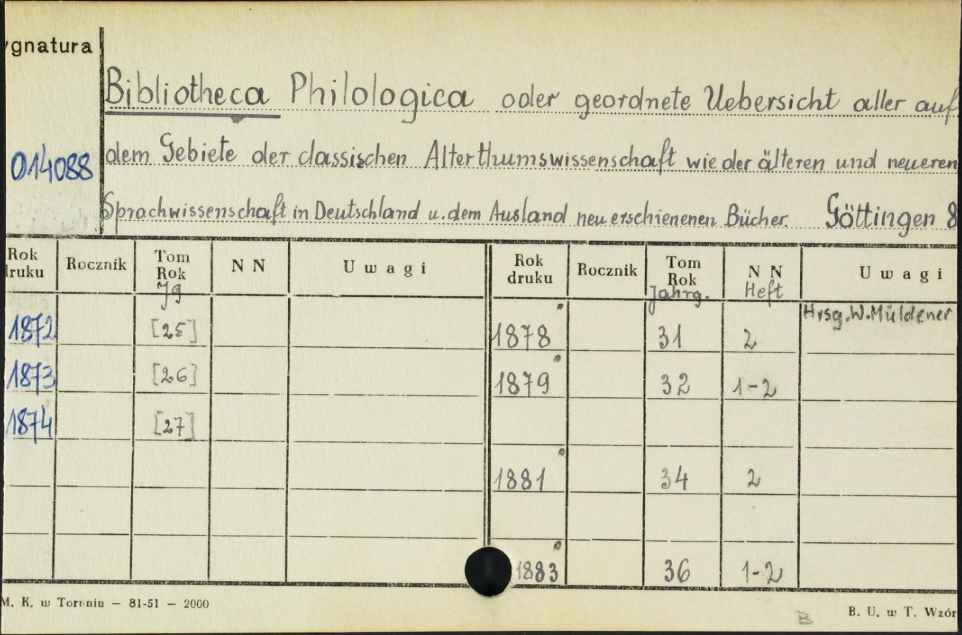 ygnatura
Bibliotheca Philologica oder geordnete Uebersicht aller auf
014088
dem Gebiete der classischen Alterthumswissenschaft wie der älteren und neueren
Sprachwissenschaft in Deutschland u. dem Ausland neu erschienenen Bücher. Göttingen 8
Rok druku Rocznik Tom Rok Jg N N Uwagi Rok druku Rocznik Tom Rok Jahrg. N N Heft Uwagi
Hrsg. W. Müldener
1872 [25] 1878 31 2
1873 [26] 1879 32 1-2
1874 [27]
1881 34 2
1883 36 1-2
M. K. w Toruniu — 81-51 — 2000
B
B. U. w T. Wzór